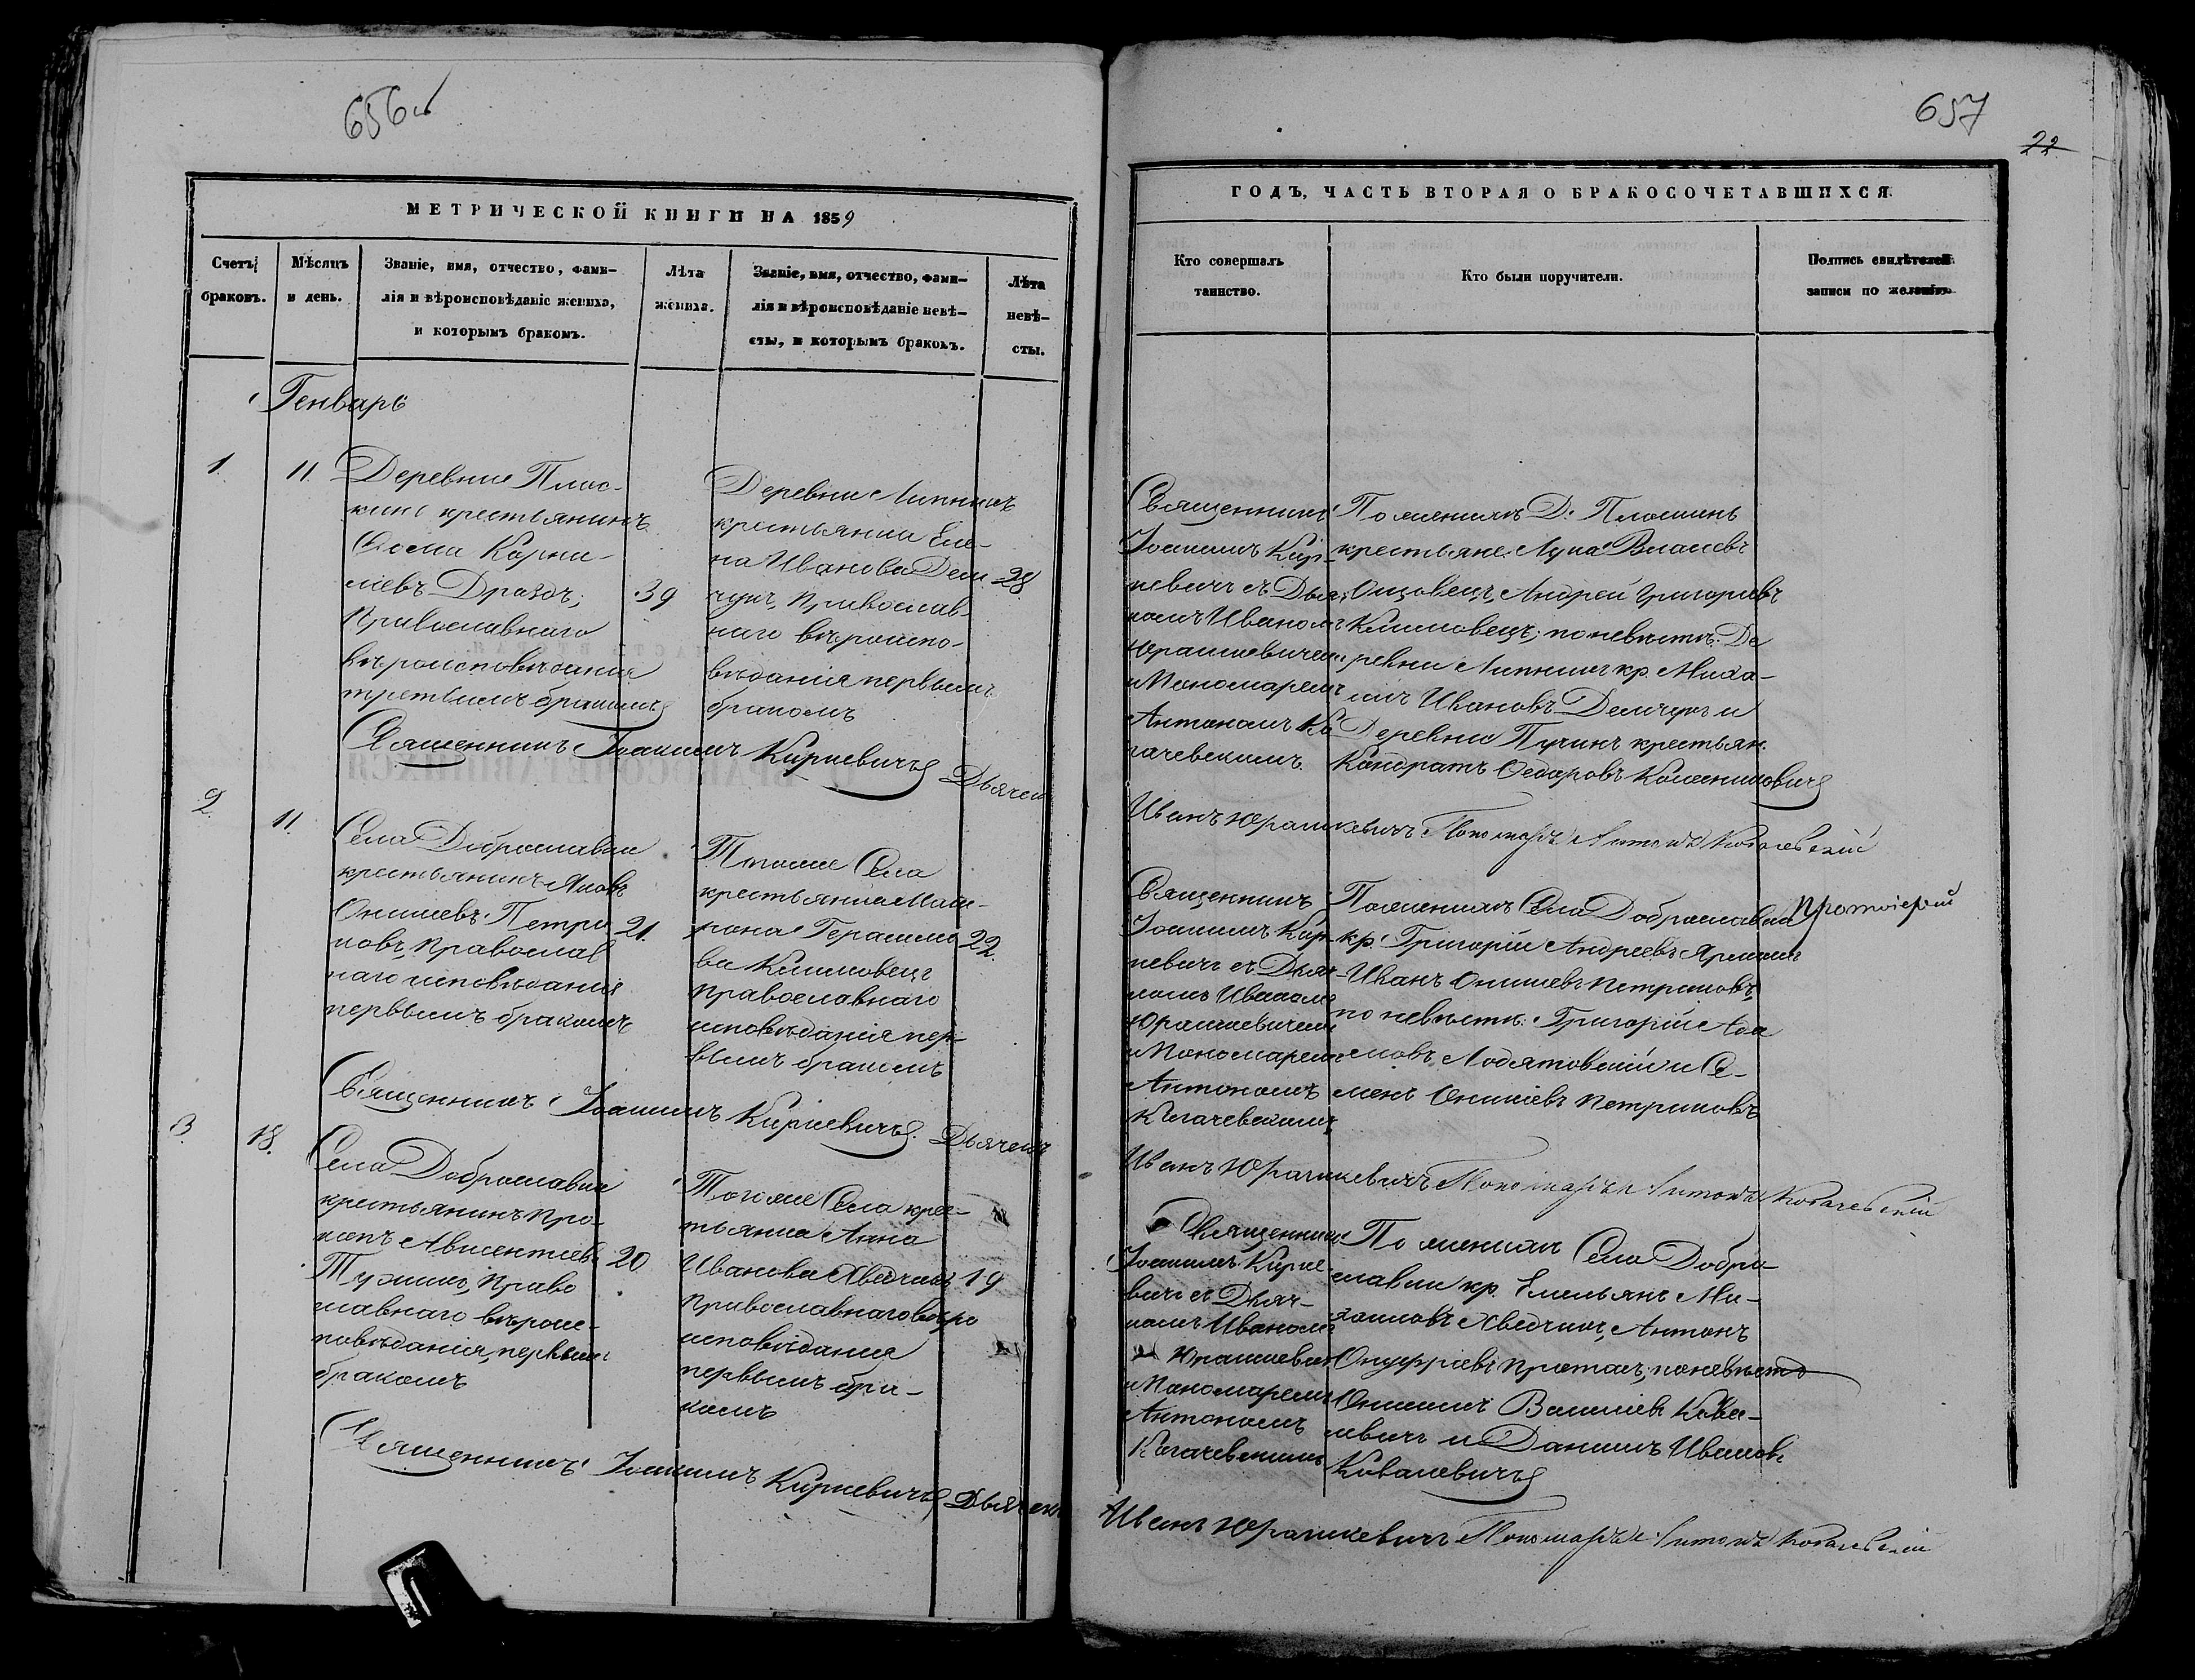 656об
МЕТРИЧЕСКОЙ КНИГИ НА 1859
Счетъ браковъ.
Мѣсяцъ и день.
Званіе, имя, отчество, фами-
лія и вѣроисповѣданіе жениха,
и которымъ бракомъ.
Лѣта
жениха.
Званіе, имя, отчество, фами-
лія и вѣроисповѣданіе невѣ-
сты, и которымъ бракомъ.
Лѣта
невѣ-
сты.
Генварь
1.
11.
Деревни Плос-
кинь крестьянинъ
Фома Корни-
ліевъ Дроздъ,
Православнаго
вѣроисповѣданія
третьимъ бракомъ
39
Деревни Липникъ
крестьянка Еле-
на Иванова Дем
чукъ, Православ-
наго вѣроиспо-
вѣданія первымъ
бракомъ
28
Священникъ Іоакимъ Киркевичъ Дьячекъ
2.
11.
Села Доброславки
крестьянинъ Яковъ
Онисіевъ Петри
ковъ, Православ
наго исповѣданія
первымъ бракомъ
21.
Тогоже Села
крестьянка Мат-
рона Герасимо
ва Климовецъ
Православнаго
исповѣданія пер-
вымъ бракомъ
22.
Священникъ Іоакимъ Киркевичъ. Дьячекъ
3.
18.
Села Доброславки
крестьянинъ Про-
копъ Авксентіевъ
Право
славнаго вѣроис-
повѣданія, первымъ
бракомъ
20
Тогоже Села крес-
тьянка Анна
Иванова Хведчикъ
Православнаго вѣро
исповѣданія
первымъ бра-
комъ
19
Священникъ Іоакимъ Киркевичъ Дьячекъ
657
22
ГОДЪ, ЧАСТЬ ВТОРАЯ О БРАКОСОЧЕТАВШИХСЯ.
Кто совершалъ
таинство.
Кто были поручители.
Подпись свидѣтелей
записи по желанію.
Священникъ
Іоакимъ Кир-
кевичъ съ Дья
комъ Иваномъ
Юрашкевичемъ
и Пономаремъ
Антономъ Ко
гачевскимъ.
По женихѣ Д. Плоскинь
крестьяне Лука Власіевъ
Андрей Григоріевъ
Климовецъ; по невѣстѣ: Де
ревни Липникъ кр. Миха-
илъ Ивановъ Демчукъ и
Деревни Пучинъ крестьян.
Кондратъ Федоровъ
Иванъ Юрашкевичъ Пономарь Антонъ Когачевскій
Священникъ
Іоакимъ Кир-
кевичъ съ Дьяч-
комъ Иваномъ
Юрашкевичемъ
и Пономаремъ
Антономъ
Когачевскимъ
По женихѣ Села Доброславки
кр. Григорій Андреевъ
Иванъ Онисіевъ Петриковъ,
по невѣстѣ: Григорій Ада
мовъ и Се-
менъ Онисіевъ Петриковъ
Протоіерей
Иванъ Юрашкевичъ Пономарь Антонъ Когачевскій
Священникъ
Іоакимъ Кирке-
вичъ съ Дьяч-
комъ Иваномъ
Юрашкевичемъ
и Пономаремъ
Антономъ
Когачевскимъ
По женихѣ Села Добро-
славки кр. Емельянъ Ми-
хаиловъ Хведчикъ, Антонъ
Онуфріевъ Протасъ; по невѣстѣ
Онисимъ Василіевъ Кова-
левичъ и Даніилъ Ивановъ
Ковалевичъ
Иванъ Юрашкевичъ Пономарь Антонъ Когачевскій